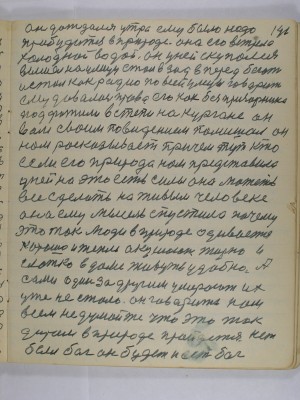 он дождался утра ему было надо 146
прибудется в природе. она его встрела
холодной водой. он у ней скупался
вышел на улицу стал в зад в перед бегать
и стал как радио по всей улице говарить
ему давалось право его как безпризорника
подхватили в степи на кургане он
вам своим поведением помешал он
нам россказывает причем тут кто
если его природа нам представила
у ней на это есть силы она может
все сделать на живым человеке
она ему мысль спустила почему
это так люди в природе одеваются
хорошо и тепло а кушают жирно и
сладко в доме живуть удобно. А
сами один за другим умирают их
уже не стало. он говарить нам
всем не думайте что это так
даром в природе пройдется нет
были бог он будет и есть бог